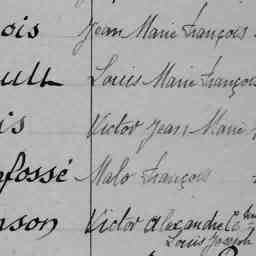 ois Jean Marie François
ult Louis Marie François
is Victor Jean Marie
fossé Malo François
nson Victor Alexandre
Louis Joseph